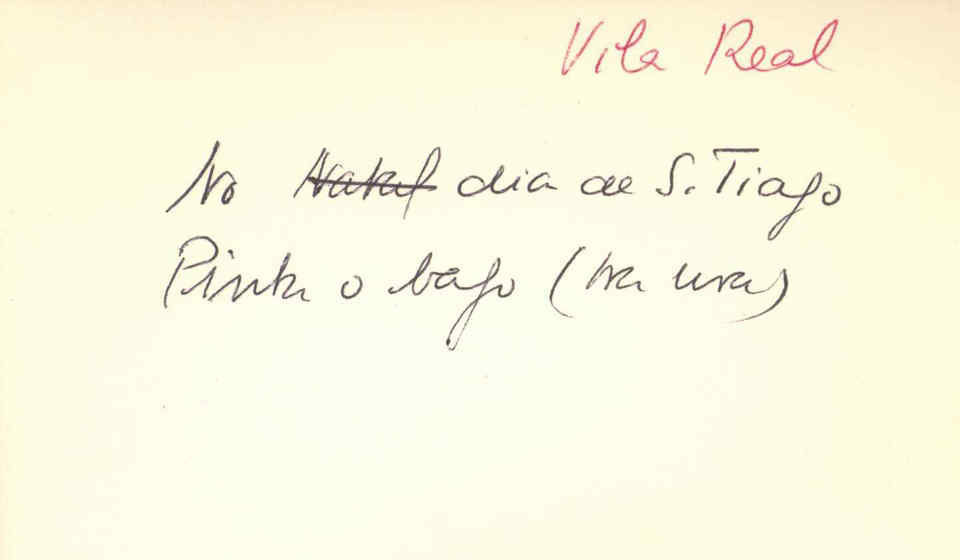 Vila Real
No Natal dia de S. Tiago
Pinta o bago (na uva)